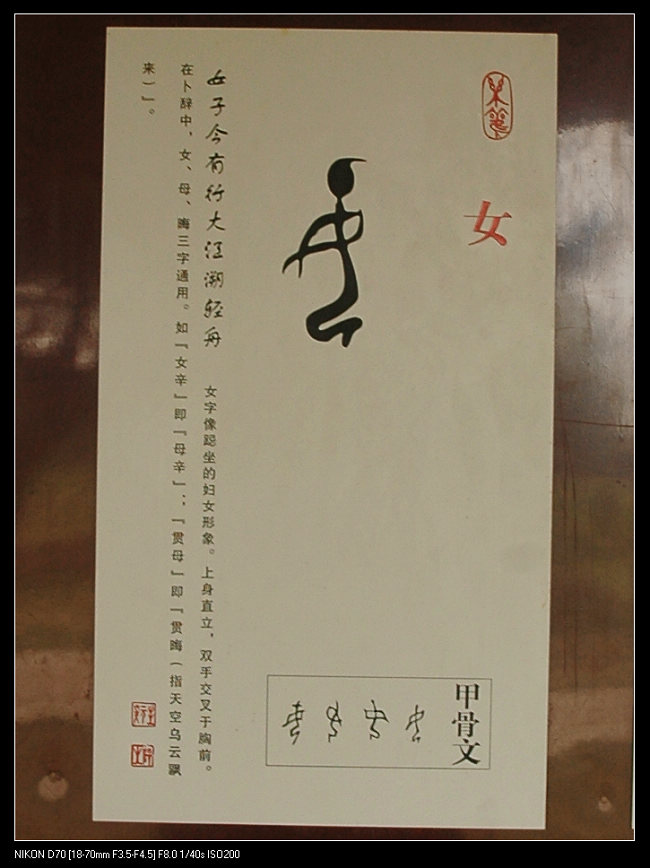 女
女子今有行大江溯轻舟
女字像跽坐的妇女形象。上身直立，双手交叉于胸前。
在卜辞中，女、母、晦三字通用。如『女辛』即『母辛』；『贯母』即『贯晦（指天空乌云飘
来）』。
甲骨文
NIKON D70 [18-70mm F3.5-F4.5] F8.0 1/40s ISO200